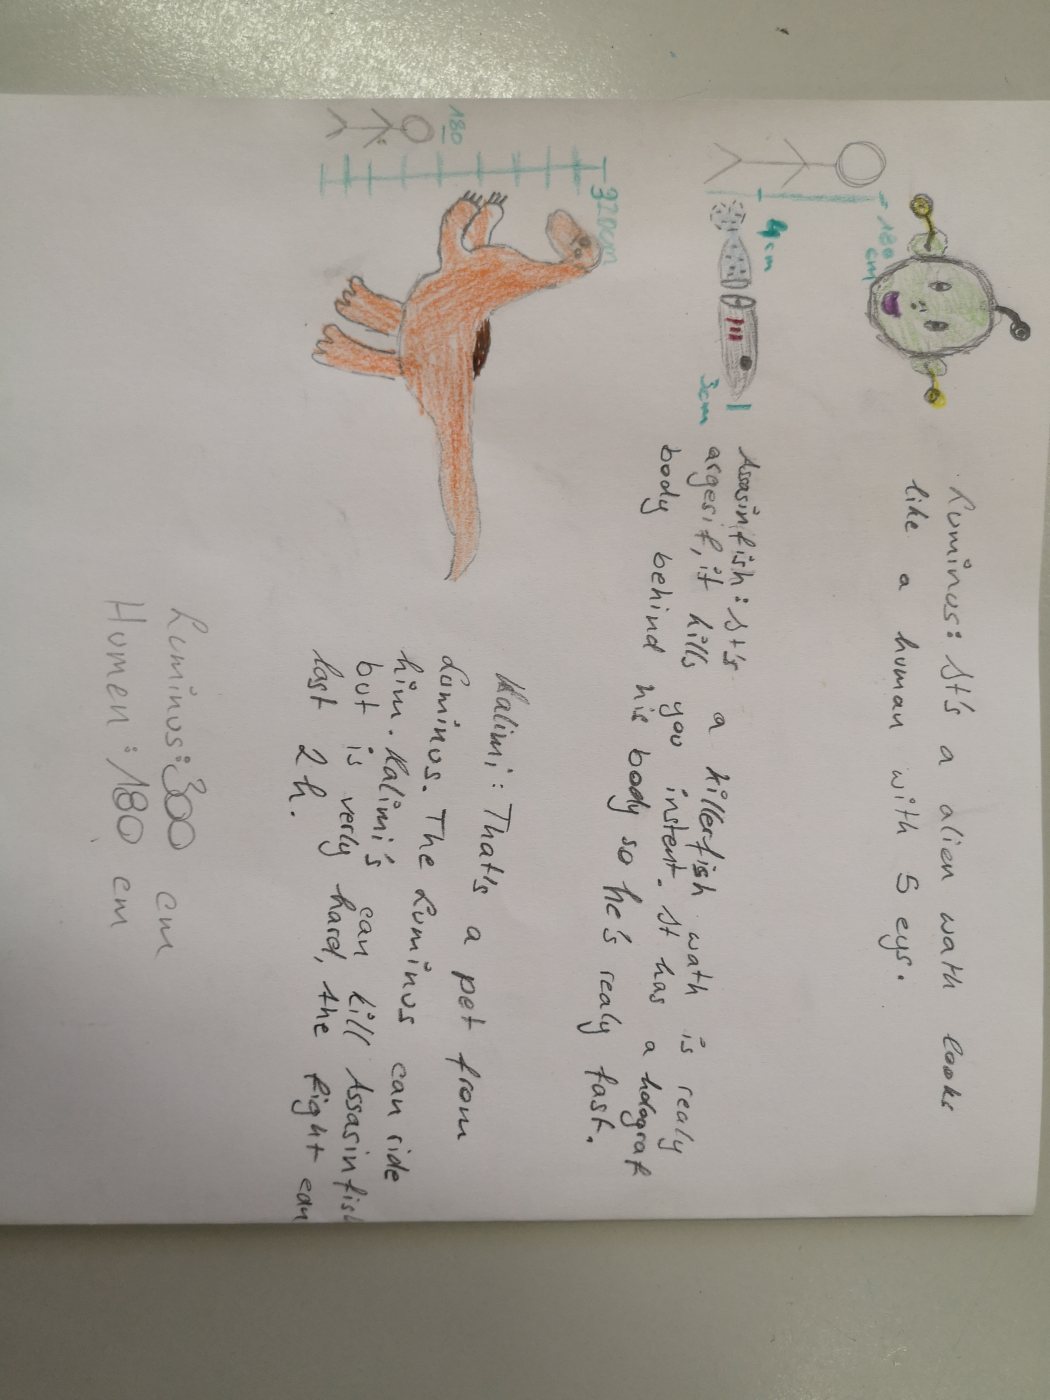 180 cm
Luminus: It's a alien wath looks
like a human with 5 eys.
4cm
3cm
Assasinfish: It's a killerfish wath is realy
it kills you instent. It has a holograf
body behind his body so he's realy fast.
320cm
180
Kalimi: That's a pet from
Luminus. The Luminus can ride
him. Kalimi's can kill Assasinfish
but is verly hard, the fight can
last 2 h.
Luminus: 300 cm
Humen: 180 cm